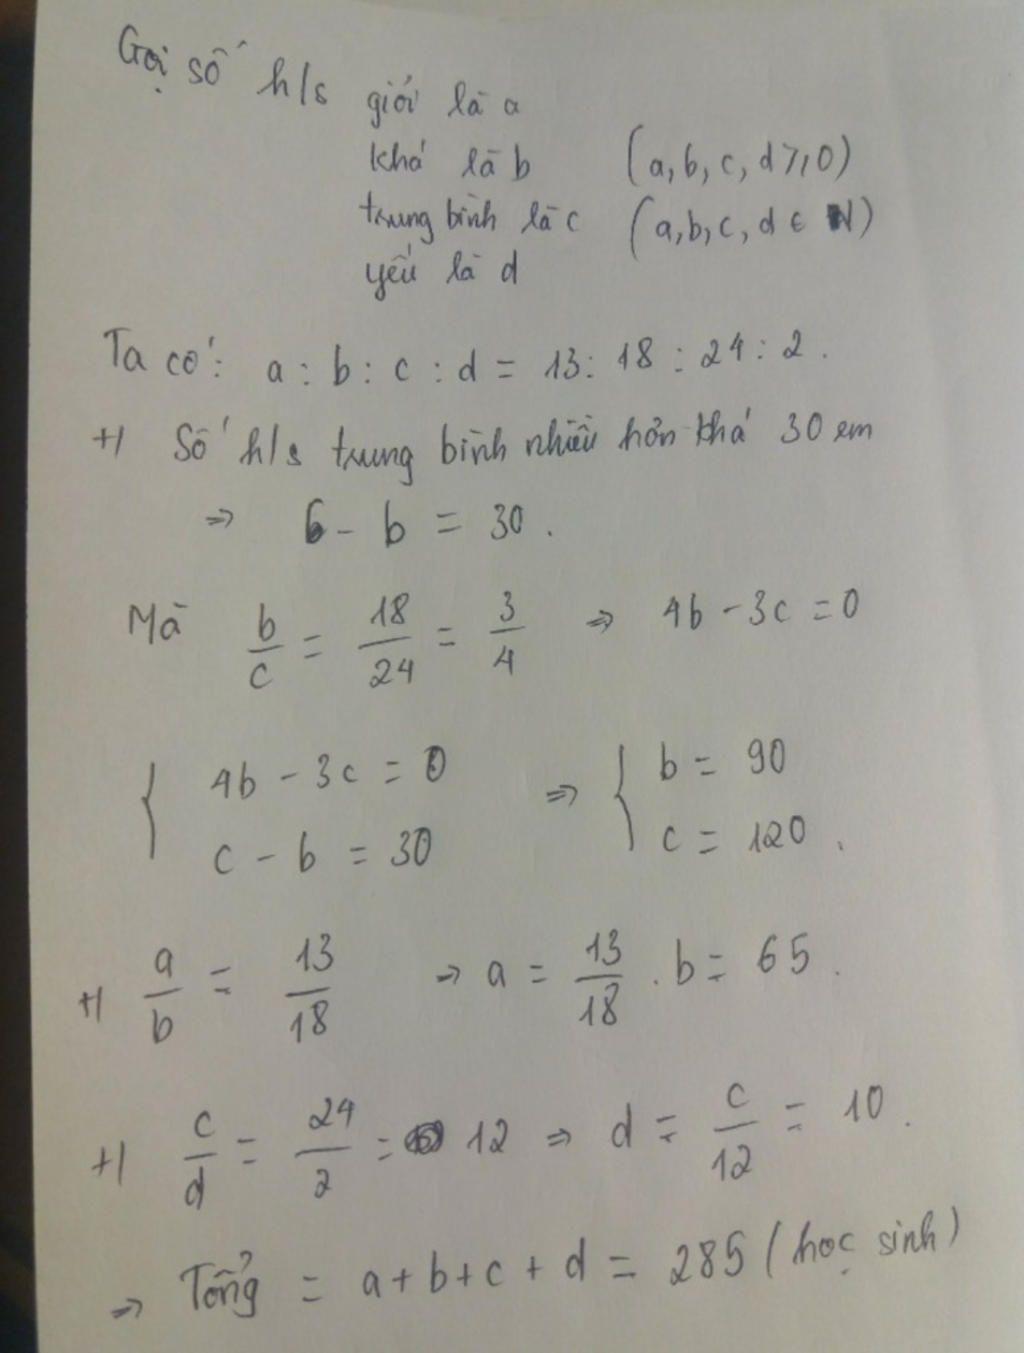 Gọi số h/s giỏi là a
khá là b (a, b, c, d ⩾ 0)
trung bình là c (a, b, c, d ∈ N)
yếu là d
Ta có: a : b : c : d = 13 : 18 : 24 : 2 .
+/ Số h/s trung bình nhiều hơn khá 30 em
⇒ - b = 30 .
Mà b/c = 18/24 = 3/4 ⇒ 4b - 3c = 0
{ 4b - 3c = 0 ⇒ { b = 90
c - b = 30 c = 120 .
+/ a/b = 13/18 → a = 13/18 . b = 65 .
+/ c/d = 24/2 = 12 ⇒ d = c/12 = 10 .
⇒ Tổng = a + b + c + d = 285 (học sinh)